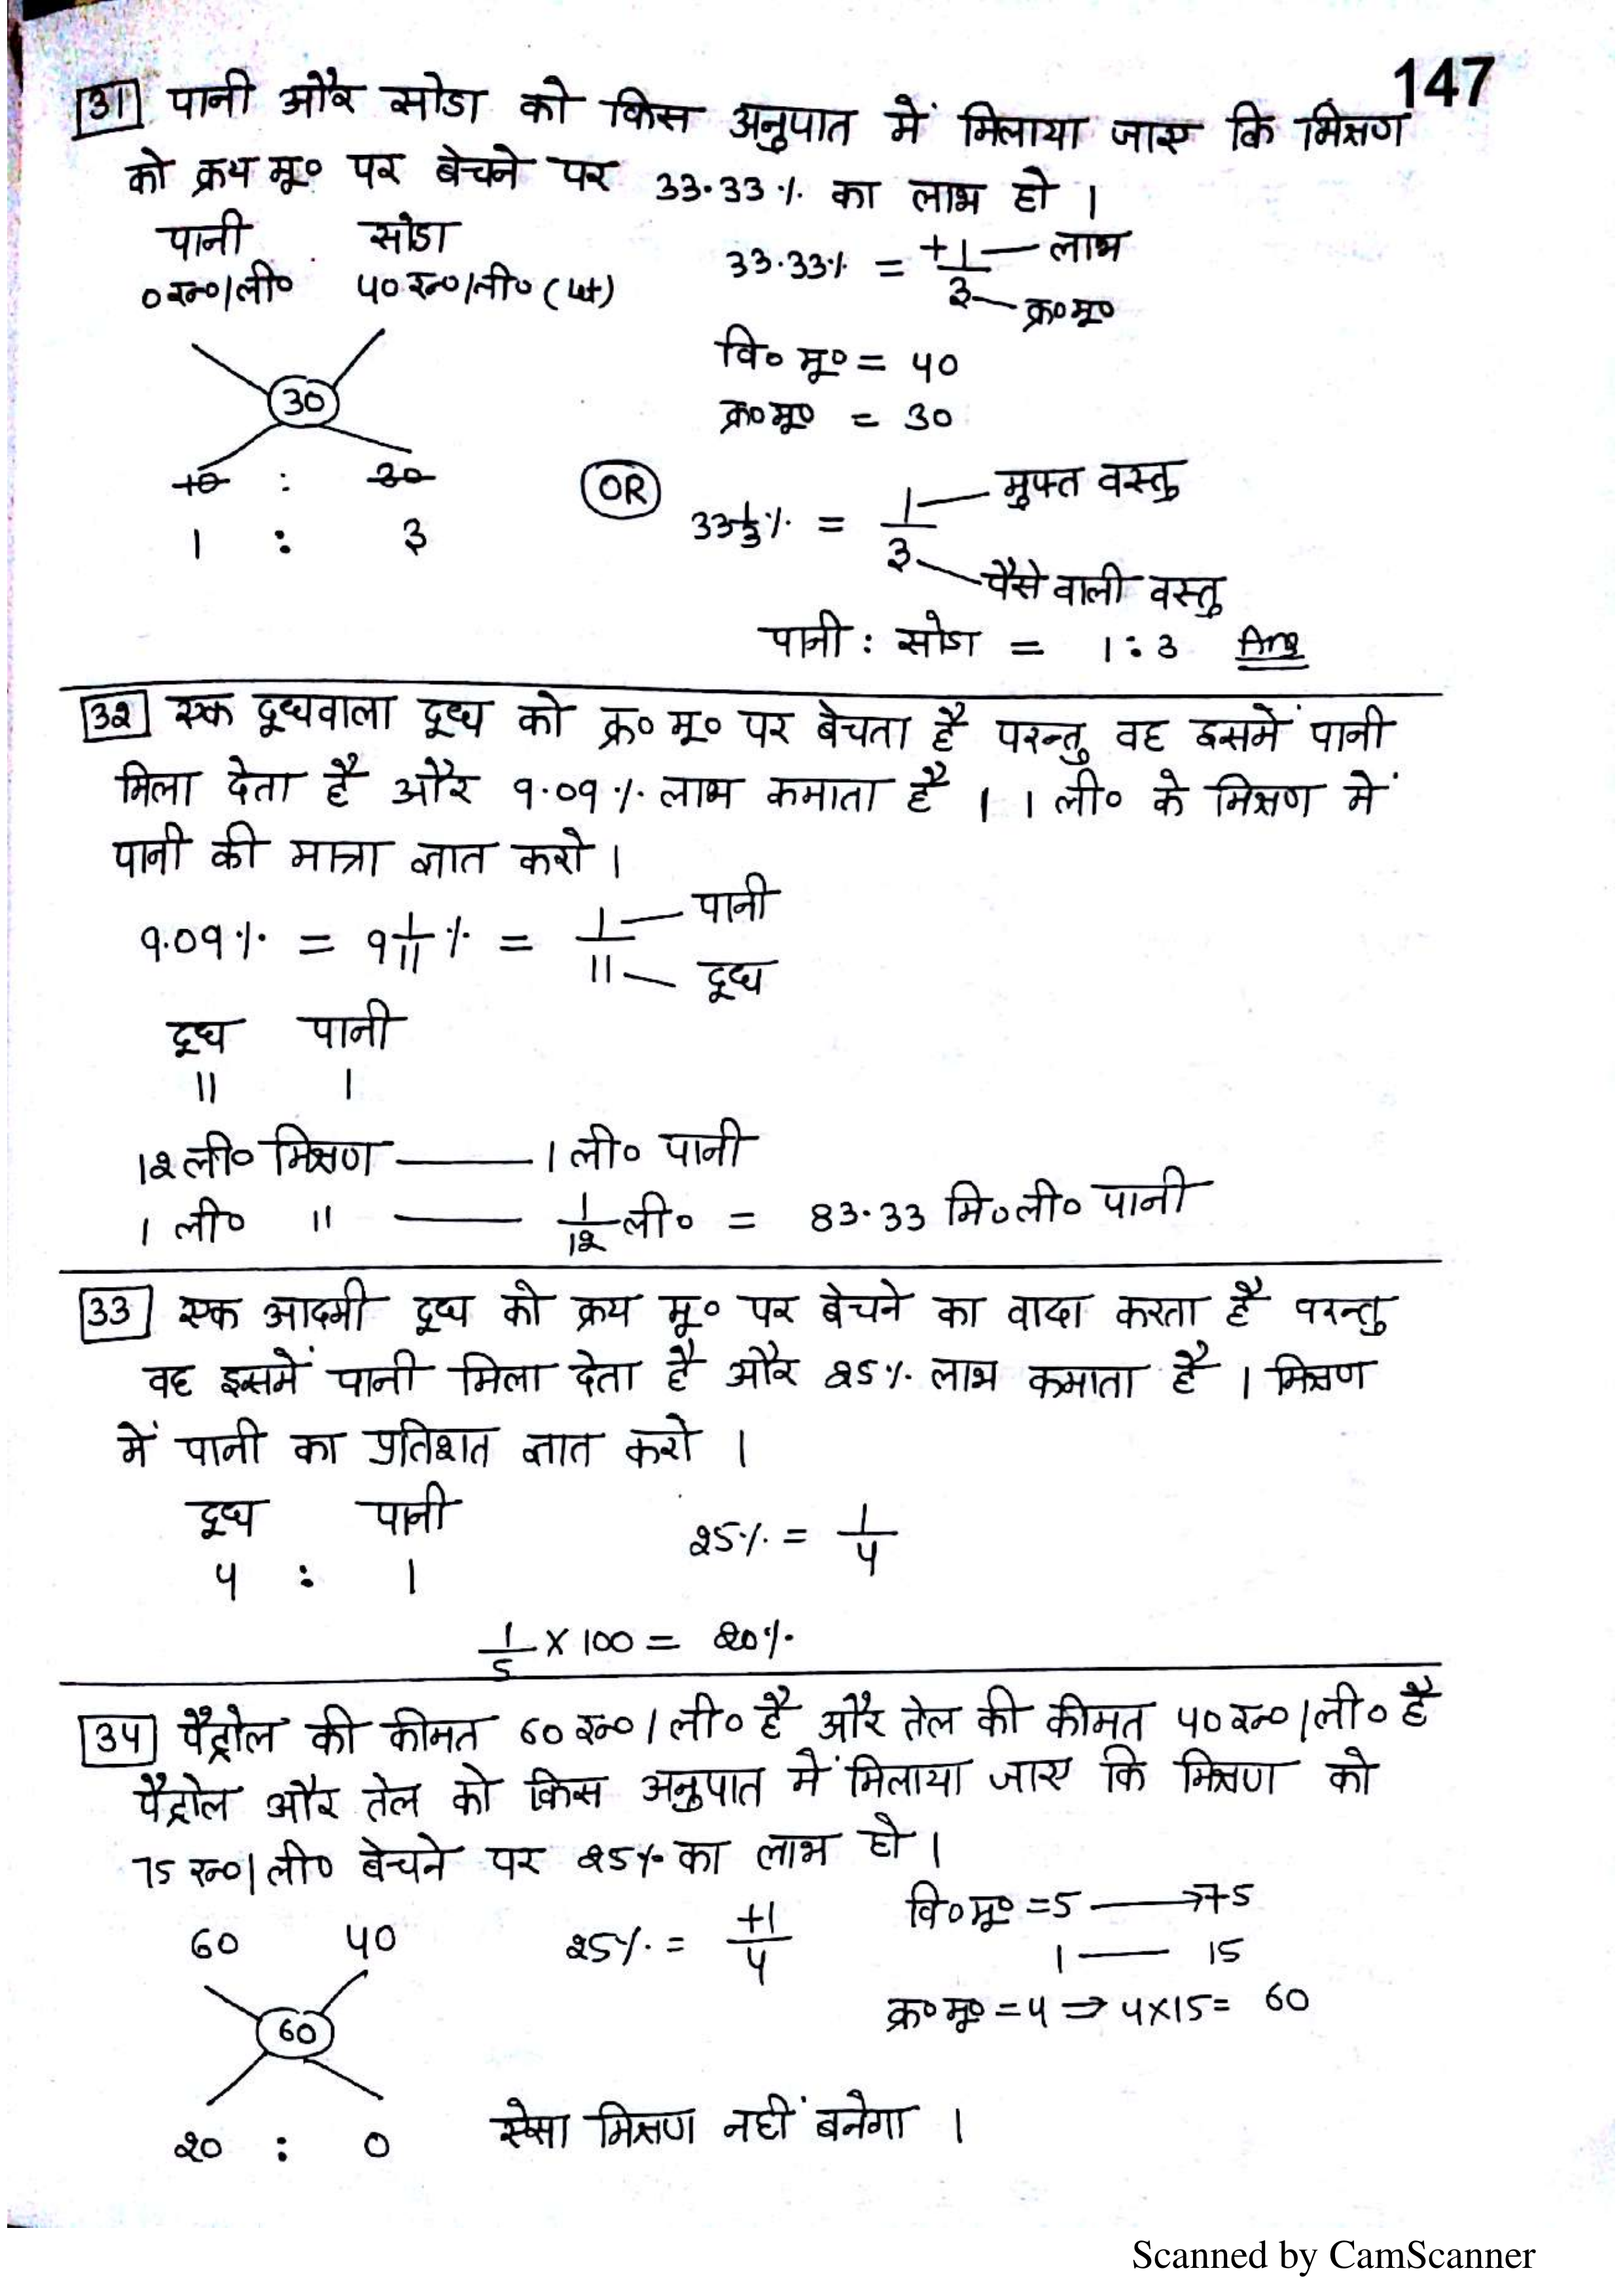 147
31 पानी और सोडा को किस अनुपात में मिलाया जाए कि मिश्रण
को क्रय मू० पर बेचने पर 33.33% का लाभ हो ।
पानी सोडा
0रू०/ली० 40रू०/ली० (Let)
33.33% = +1/3 लाभ
क्र०मू०
वि० मू० = 40
क्र०मू० = 30
30
10 : 30
1 : 3
OR 33 1/3% = 1/3 मुफ्त वस्तु
पैसे वाली वस्तु
पानी : सोडा = 1:3 Ans
32 एक दूधवाला दूध को क्र० मू० पर बेचता है परन्तु वह इसमें पानी
मिला देता है और 9.09% लाभ कमाता है । 1 ली० के मिश्रण में
पानी की मात्रा ज्ञात करो ।
9.09% = 9 1/11 % = 1/11 पानी
दूध
दूध पानी
11 1
12ली० मिश्रण — 1 ली० पानी
1 ली० " — 1/12 ली० = 83.33 मि०ली० पानी
33 एक आदमी दूध को क्रय मू० पर बेचने का वादा करता है परन्तु
वह इसमें पानी मिला देता है और 25% लाभ कमाता है । मिश्रण
में पानी का प्रतिशत ज्ञात करो ।
दूध पानी
4 : 1
25% = 1/4
1/5 × 100 = 20%
34 पैट्रोल की कीमत 60रू०/ली० है और तेल की कीमत 40रू०/ली० है
पैट्रोल और तेल को किस अनुपात में मिलाया जाए कि मिश्रण को
75रू०/ली० बेचने पर 25% का लाभ हो ।
60 40
25% = +1/4
वि०मू० = 5 → 75
1 — 15
क्र०मू० = 4 ⇒ 4×15= 60
60
20 : 0
ऐसा मिश्रण नहीं बनेगा ।
Scanned by CamScanner